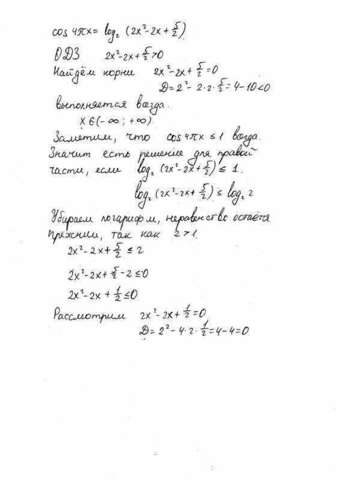 cos 4πx = log₂ (2x²-2x+5/2)
ОДЗ 2x²-2x+5/2>0
Найдём корни 2x²-2x+5/2=0
D=2²- 2·2·5/2=4-10<0
выполняется всегда.
x∈(-∞; +∞)
Заметим, что cos 4πx ≤ 1 всегда.
Значит есть решение для правой
части, если log₂ (2x²-2x+5/2) ≤ 1.
log₂ (2x²-2x+5/2) ≤ log₂ 2
Убираем логарифм, неравенство остаётся
прежним, так как 2>1.
2x²-2x+5/2 ≤ 2
2x²-2x+5/2-2≤0
2x²-2x+1/2≤0
Рассмотрим 2x²-2x+1/2=0
D=2²-4·2·1/2=4-4=0